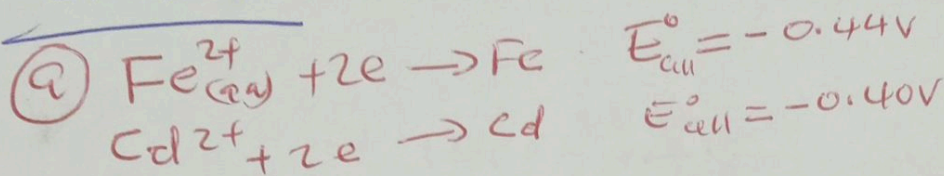 (a) Fe²⁺(aq) + 2e → Fe E°cell = - 0.44V
Cd²⁺ + 2e → Cd E°cell = -0.40V